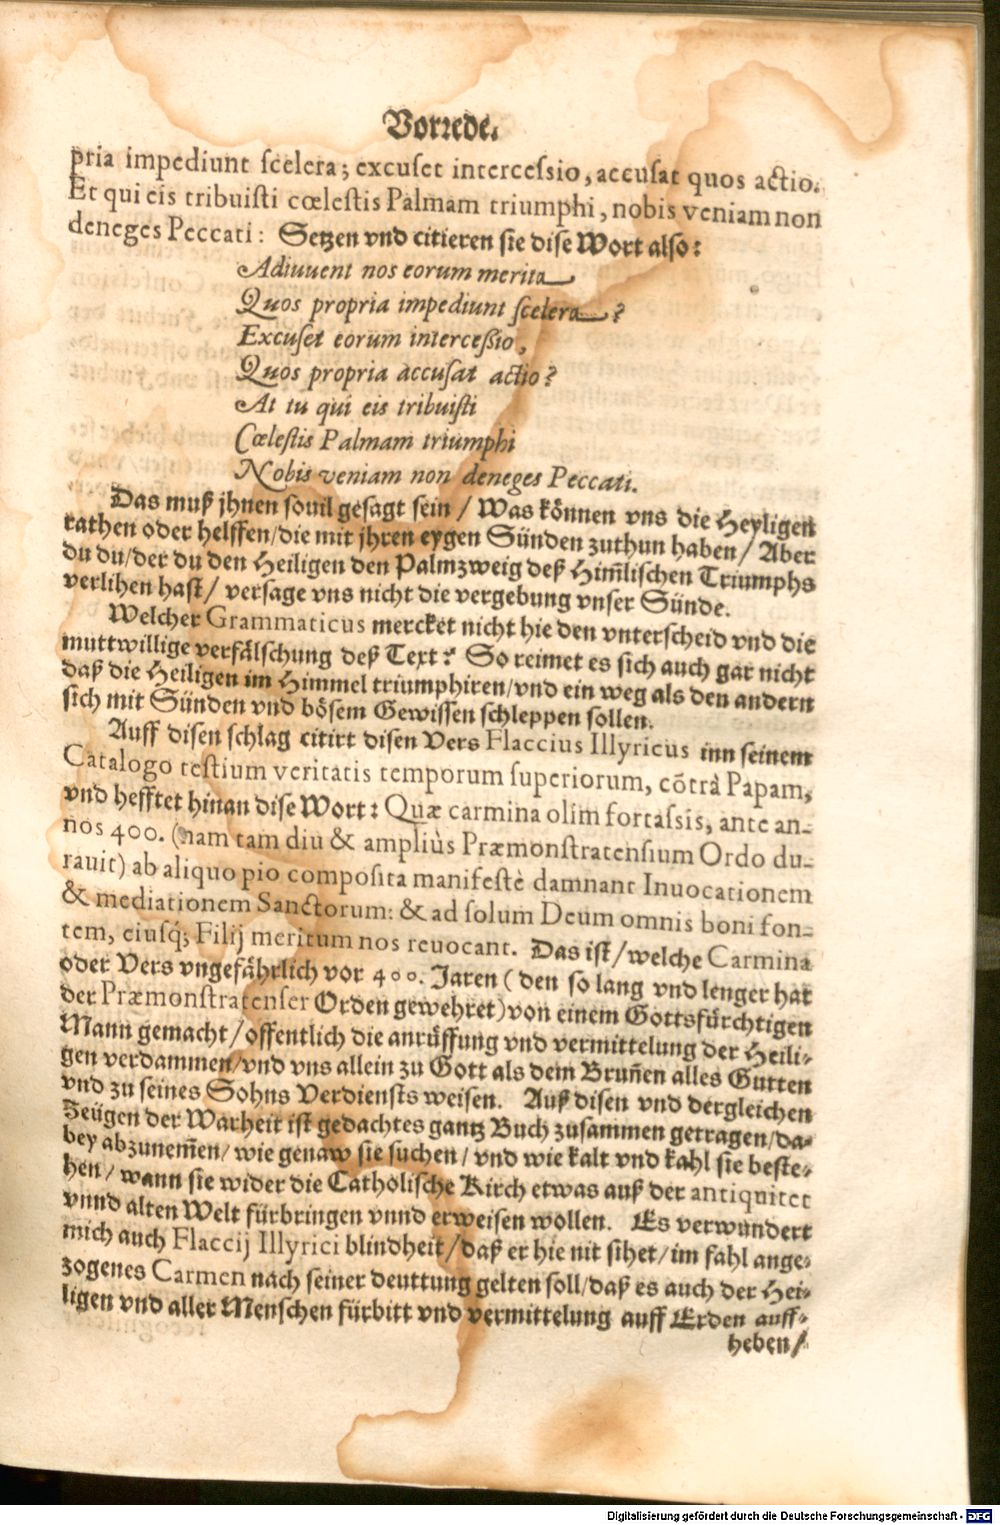 Vorrede.
pria impediunt scelera; excuset intercessio, accusat quos actio.
Et qui eis tribuisti cœlestis Palmam triumphi, nobis veniam non
deneges Peccati: Setzen vnd citieren sie dise Wort also:
Adiuuent nos eorum merita
Quos propria impediunt scelera?
Excuset eorum intercessio,
Quos propria accusat actio?
At tu qui eis tribuisti
Cœlestis Palmam triumphi
Nobis veniam non deneges Peccati.
Das muß jhnen souil gesagt sein / Was können vns die Heyligen
rathen oder helffen/die mit jhren eygen Sünden zuthun haben/ Aber
du du/der du den Heiligen den Palmzweig deß Him̃lischen Triumphs
verlihen hast/ versage vns nicht die vergebung vnser Sünde.
Welcher Grammaticus mercket nicht hie den vnterscheid vnd die
muttwillige verfälschung deß Text? So reimet es sich auch gar nicht
daß die Heiligen im Himmel triumphiren/vnd ein weg als den andern
sich mit Sünden vnd bösem Gewissen schleppen sollen.
Auff disen schlag citirt disen Vers Flaccius Illyricus inn seinem
Catalogo testium veritatis temporum superiorum, cõtrà Papam,
vnd hefftet hinan dise Wort: Quæ carmina olim fortassis, ante an-
nos 400. (nam tam diu & ampliùs Præmonstratensium Ordo du-
rauit) ab aliquo pio composita manifestè damnant Inuocationem
& mediationem Sanctorum: & ad solum Deum omnis boni fon-
tem, eiusq́; Filij meritum nos reuocant. Das ist/welche Carmina
oder Vers vngefährlich vor 400. Jaren (den so lang vnd lenger hat
der Præmonstratenser Orden gewehret) von einem Gottsförchtigen
Mann gemacht/offentlich die anrüffung vnd vermittelung der Heili-
gen verdammen/vnd vns allein zu Gott als dem Brun̄en alles Gutten
vnd zu seines Sohns Verdiensts weisen. Auß disen vnd dergleichen
Zeügen der Warheit ist gedachtes gantz Buch zusammen getragen/da-
bey abzunem̄en/ wie genaw sie suchen/ vnd wie kalt vnd kahl sie beste-
hen/ wann sie wider die Catholische Kirch etwas auß der antiquitet
vnnd alten Welt fürbringen vnnd erweisen wollen. Es verwundert
mich auch Flaccij Illyrici blindheit/daß er hie nit sihet/im fahl ange-
zogenes Carmen nach seiner deuttung gelten soll/daß es auch der Hei-
ligen vnd aller Menschen fürbitt vnd vermittelung auff Erden auff-
heben/
Digitalisierung gefördert durch die Deutsche Forschungsgemeinschaft - DFG